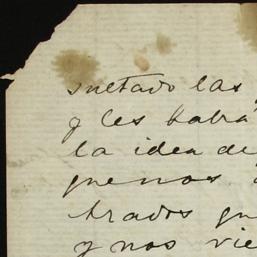 sultado las
y les habra
la idea de
que nos
trados qu
y nos vie